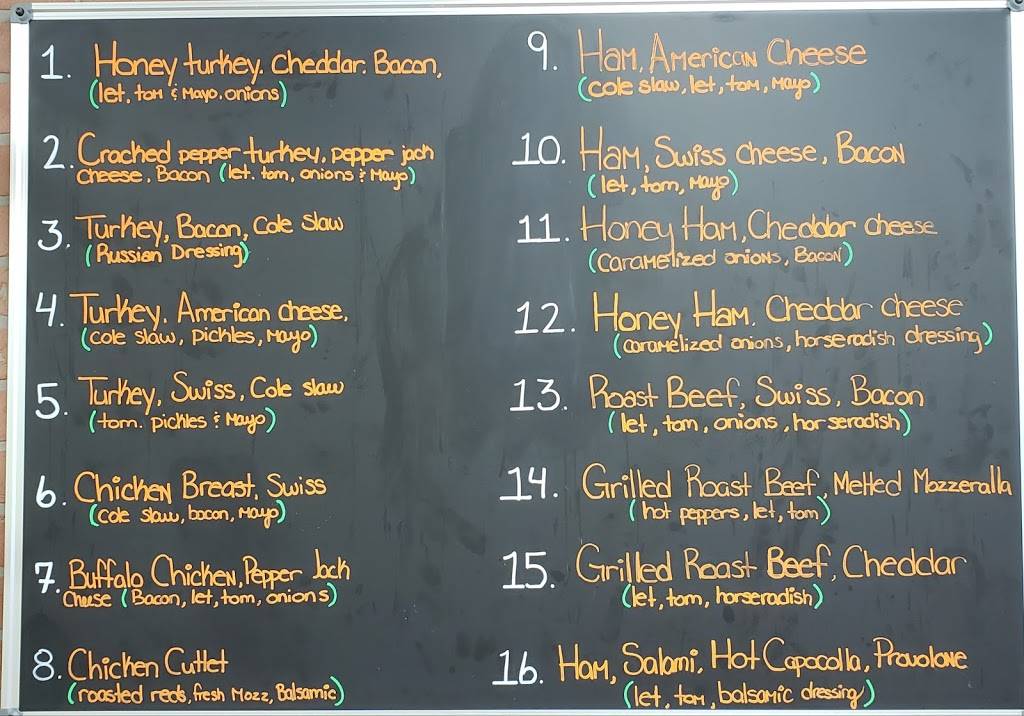 1. Honey turkey. Cheddar. Bacon,
(let, tom & Mayo, onions)
2. Cracked pepper turkey, pepper jack
Cheese. Bacon (let. tom, onions & Mayo)
3. Turkey, Bacon, Cole Slaw
(Russian Dressing)
4. Turkey. American cheese,
(cole slaw, pickles, Mayo)
5. Turkey, Swiss, Cole slaw
(tom. pickles & Mayo)
6. Chicken Breast, Swiss
(Cole slaw, bacon, Mayo)
7. Buffalo Chicken, Pepper Jack
Cheese (Bacon, let, tom, onions)
8. Chicken Cutlet
(roasted reds, fresh Mozz, Balsamic)
9. Ham, American Cheese
(cole slaw, let, tom, Mayo)
10. Ham, Swiss cheese, Bacon
(let, tom, Mayo)
11. Honey Ham, Cheddar cheese
(Caramelized onions, Bacon)
12. Honey Ham. Cheddar cheese
(caramelized onions, horseradish dressing)
13. Roast Beef, Swiss, Bacon
(let, tom, onions, horseradish)
14. Grilled Roast Beef, Melted Mozzeralla
(hot peppers, let, tom)
15. Grilled Roast Beef, Cheddar
(let, tom, horseradish)
16. Ham, Salami, Hot Capocolla, Provolone
(let, tom, balsamic dressing)